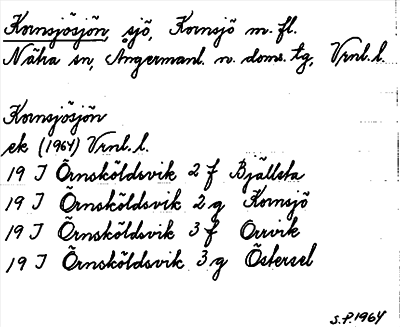 Kornsjösjön, sjö, Kornsjö m. fl.
Nätra sn, Ångermanl. n. doms. tg, Vrnl. l.
Kornsjösjön
ek (1964) Vrnl. l.
19 J Örnsköldsvik 2 f Bjällsta
19 J Örnsköldsvik 2 g Kornsjö
19 J Örnsköldsvik 3 f Orrvik
19 J Örnsköldsvik 3 g Östersel
S.P. 1964